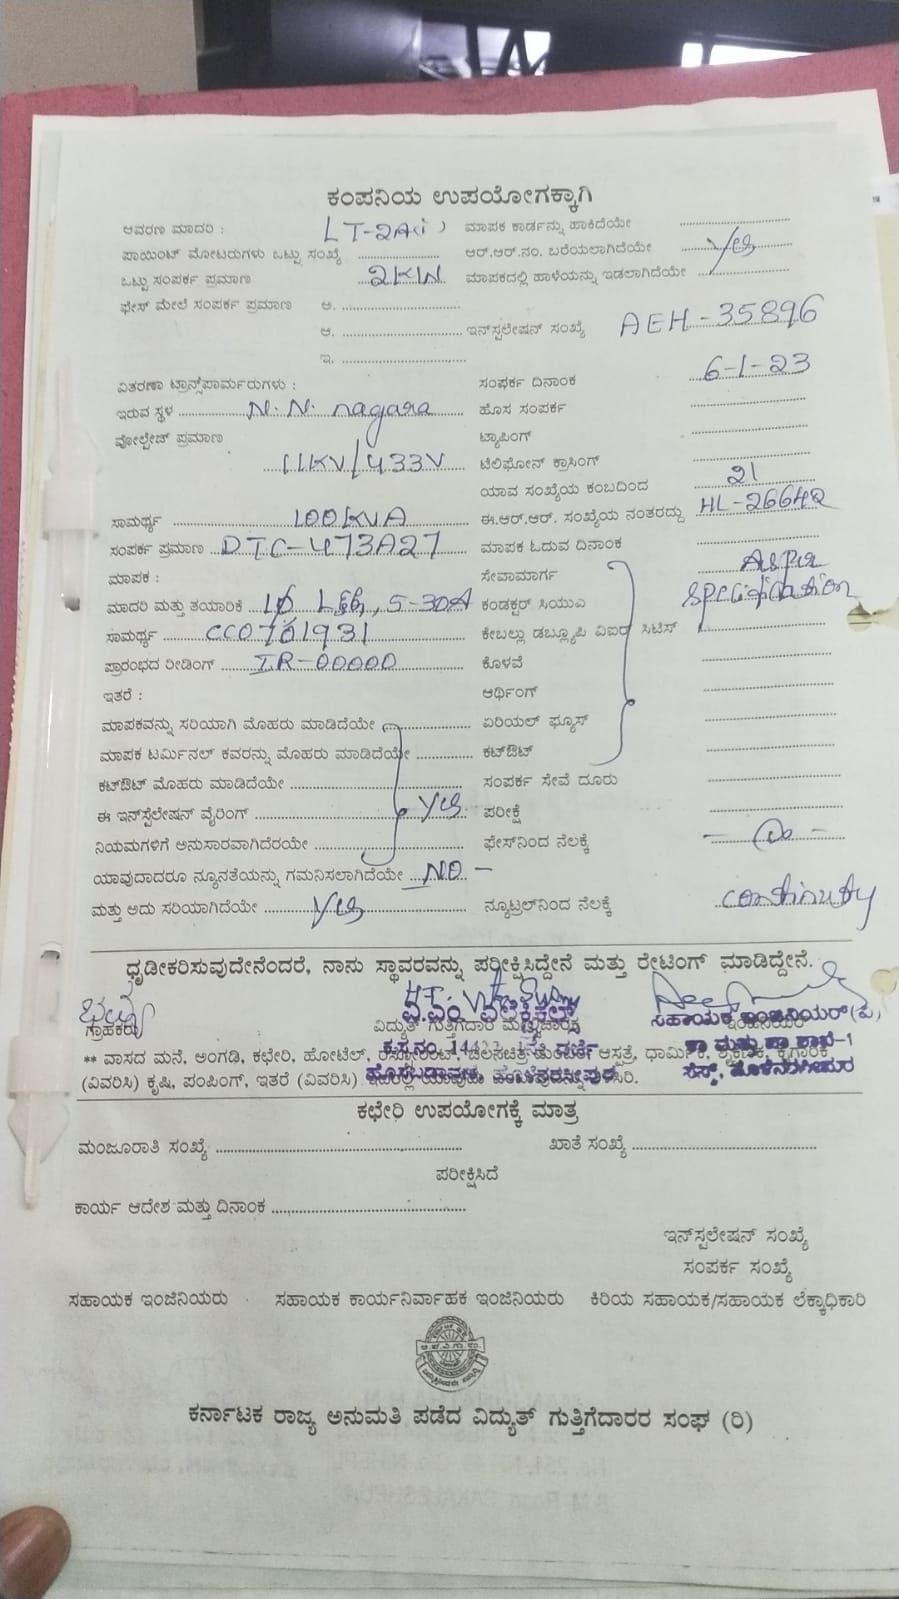 ಕಂಪನಿಯ ಉಪಯೋಗಕ್ಕಾಗಿ
ಆವರಣ ಮಾದರಿ : LT-2A(i) ಮಾಪಕ ಕಾರ್ಡನ್ನು ಹಾಕಿದೆಯೇ
ಪಾಯಿಂಟ್ ಮೋಟರುಗಳು ಒಟ್ಟು ಸಂಖ್ಯೆ ಆರ್.ಆರ್.ನಂ. ಬರೆಯಲಾಗಿದೆಯೇ Yes
ಒಟ್ಟು ಸಂಪರ್ಕ ಪ್ರಮಾಣ 2KW ಮಾಪಕದಲ್ಲಿ ಹಾಳೆಯನ್ನು ಇಡಲಾಗಿದೆಯೇ
ಫೇಸ್ ಮೇಲೆ ಸಂಪರ್ಕ ಪ್ರಮಾಣ ಅ.
ಆ. ಇನ್‌ಸ್ಟಲೇಷನ್ ಸಂಖ್ಯೆ AEH-35896
ಇ.
ವಿತರಣಾ ಟ್ರಾನ್ಸ್‌ಪಾರ್ಮರುಗಳು : ಸಂಪರ್ಕ ದಿನಾಂಕ 6-1-23
ಇರುವ ಸ್ಥಳ N.N. nagara ಹೊಸ ಸಂಪರ್ಕ
ವೋಲ್ಟೇಜ್ ಪ್ರಮಾಣ ಟ್ಯಾಪಿಂಗ್
11KV/433V ಟೆಲಿಫೋನ್ ಕ್ರಾಸಿಂಗ್
ಯಾವ ಸಂಖ್ಯೆಯ ಕಂಬದಿಂದ 21
ಸಾಮರ್ಥ್ಯ 100KVA ಈ.ಆರ್.ಆರ್. ಸಂಖ್ಯೆಯ ನಂತರದ್ದು HL-26642
ಸಂಪರ್ಕ ಪ್ರಮಾಣ DTC-473A27 ಮಾಪಕ ಓದುವ ದಿನಾಂಕ
ಮಾಪಕ : ಸೇವಾಮಾರ್ಗ As per
ಮಾದರಿ ಮತ್ತು ತಯಾರಿಕೆ 1ϕ L&G, 5-30A ಕಂಡಕ್ಟರ್ ಸಿಯುಎ specification
ಸಾಮರ್ಥ್ಯ CC0761931 ಕೇಬಲ್ಲು ಡಬ್ಲ್ಯೂಪಿ ವಿಐಆರ್ ಸಿಟಿಸ್
ಪ್ರಾರಂಭದ ರೀಡಿಂಗ್ IR-00000 ಕೊಳವೆ
ಇತರೆ : ಆರ್ಥಿಂಗ್
ಮಾಪಕವನ್ನು ಸರಿಯಾಗಿ ಮೊಹರು ಮಾಡಿದೆಯೇ ಏರಿಯಲ್ ಫ್ಯೂಸ್
ಮಾಪಕ ಟರ್ಮಿನಲ್ ಕವರನ್ನು ಮೊಹರು ಮಾಡಿದೆಯೇ ಕಟ್‌ಔಟ್
ಕಟ್‌ಔಟ್ ಮೊಹರು ಮಾಡಿದೆಯೇ ಸಂಪರ್ಕ ಸೇವೆ ದೂರು
ಈ ಇನ್‌ಸ್ಟೆಲೇಷನ್ ವೈರಿಂಗ್ Yes ಪರೀಕ್ಷೆ
ನಿಯಮಗಳಿಗೆ ಅನುಸಾರವಾಗಿದೆರಯೇ ಫೇಸ್‌ನಿಂದ ನೆಲಕ್ಕೆ
ಯಾವುದಾದರೂ ನ್ಯೂನತೆಯನ್ನು ಗಮನಿಸಲಾಗಿದೆಯೇ NO -
ಮತ್ತು ಅದು ಸರಿಯಾಗಿದೆಯೇ Yes ನ್ಯೂಟ್ರಲ್‌ನಿಂದ ನೆಲಕ್ಕೆ continuty
ಧೃಡೀಕರಿಸುವುದೇನೆಂದರೆ, ನಾನು ಸ್ಥಾವರವನ್ನು ಪರೀಕ್ಷಿಸಿದ್ದೇನೆ ಮತ್ತು ರೇಟಿಂಗ್ ಮಾಡಿದ್ದೇನೆ.
ಗ್ರಾಹಕರು ವಿದ್ಯುತ್ ಗುತ್ತಿಗೆದಾರ ಸಹಾಯಕ ಇಂಜಿನಿಯರ್(ವಿ)
** ವಾಸದ ಮನೆ, ಅಂಗಡಿ, ಕಛೇರಿ, ಹೋಟೆಲ್, ಆಸ್ಪತ್ರೆ,
(ವಿವರಿಸಿ) ಕೃಷಿ, ಪಂಪಿಂಗ್, ಇತರೆ (ವಿವರಿಸಿ)
ಕಛೇರಿ ಉಪಯೋಗಕ್ಕೆ ಮಾತ್ರ
ಮಂಜೂರಾತಿ ಸಂಖ್ಯೆ ಖಾತೆ ಸಂಖ್ಯೆ
ಪರೀಕ್ಷಿಸಿದೆ
ಕಾರ್ಯ ಆದೇಶ ಮತ್ತು ದಿನಾಂಕ
ಇನ್‌ಸ್ಟಲೇಷನ್ ಸಂಖ್ಯೆ
ಸಂಪರ್ಕ ಸಂಖ್ಯೆ
ಸಹಾಯಕ ಇಂಜಿನಿಯರು ಸಹಾಯಕ ಕಾರ್ಯನಿರ್ವಾಹಕ ಇಂಜಿನಿಯರು ಕಿರಿಯ ಸಹಾಯಕ/ಸಹಾಯಕ ಲೆಕ್ಕಾಧಿಕಾರಿ
ಕರ್ನಾಟಕ ರಾಜ್ಯ ಅನುಮತಿ ಪಡೆದ ವಿದ್ಯುತ್ ಗುತ್ತಿಗೆದಾರರ ಸಂಘ (ರಿ)